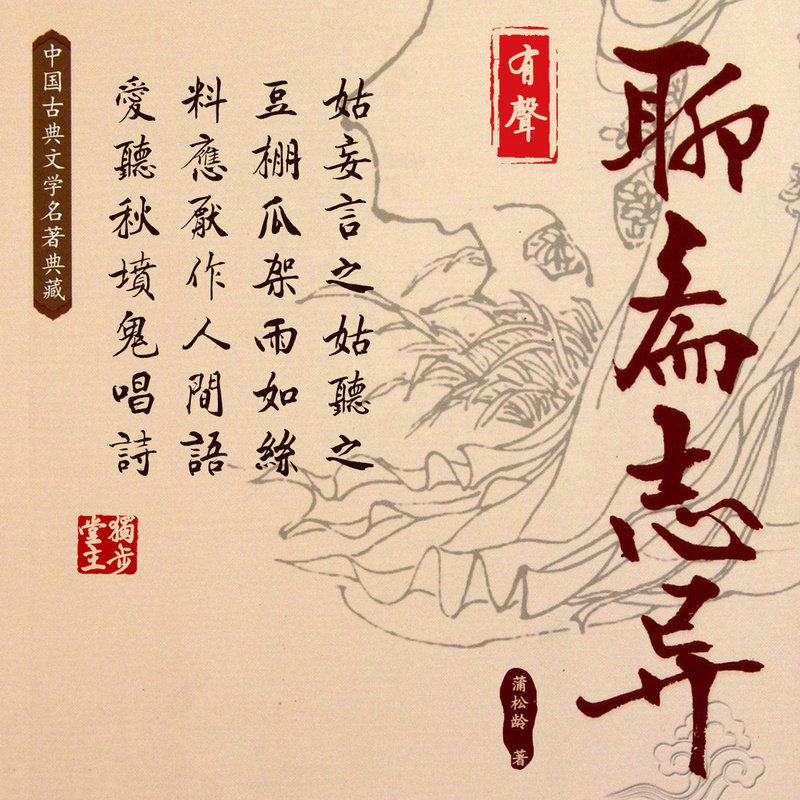 聊斋志异
有聲
姑妄言之姑聽之
豆棚瓜架雨如絲
料應厭作人間語
愛聽秋墳鬼唱詩
獨步
堂主
中国古典文学名著典藏
蒲松龄 著